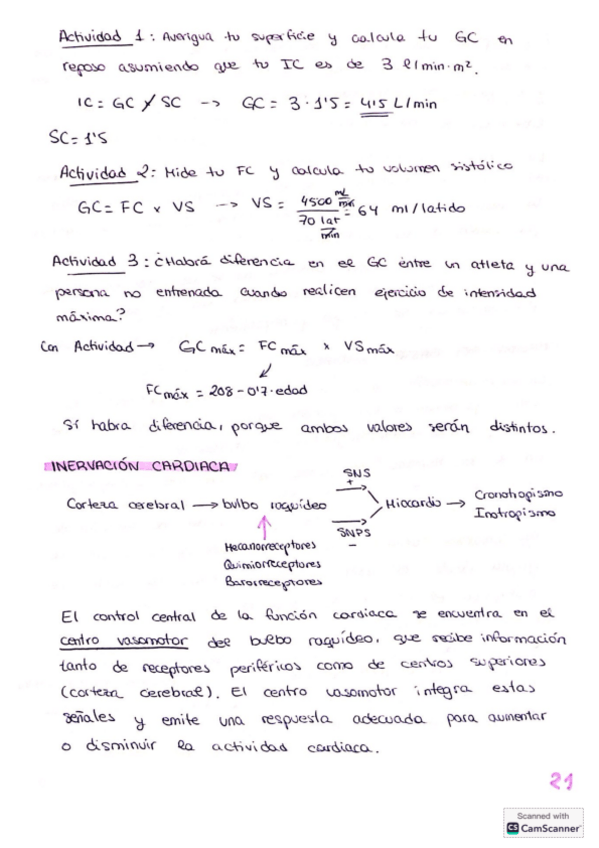 Actividad 1: Averigua tu superficie y calcula tu GC en
reposo asumiendo que tu IC es de 3 l/min·m².
IC = GC / SC → GC = 3 · 1'5 = 4'5 L/min
SC = 1'5
Actividad 2: Mide tu FC y calcula tu volumen sistólico
GC = FC x VS → VS = 4500 mL/min / 70 lat/min = 64 ml/latido
Actividad 3: ¿Habrá diferencia en el GC entre un atleta y una
persona no entrenada cuando realicen ejercicio de intensidad
máxima?
Con Actividad → GC máx = FC máx x VS máx
FC máx = 208 - 0'7 · edad
Sí habra diferencia, porque ambos valores serán distintos.
INERVACIÓN CARDIACA
SNS
+
Corteza cerebral → bulbo raquídeo → Miocardio → Cronotropismo
Inotropismo
SNPS
-
Mecanorreceptores
Quimiorreceptores
Barorreceptores
El control central de la función cardiaca se encuentra en el
centro vasomotor del bulbo raquídeo, que recibe información
tanto de receptores periféricos como de centros superiores
(corteza cerebral). El centro vasomotor integra estas
señales y emite una respuesta adecuada para aumentar
o disminuir la actividad cardiaca.
21
Scanned with
CS CamScanner